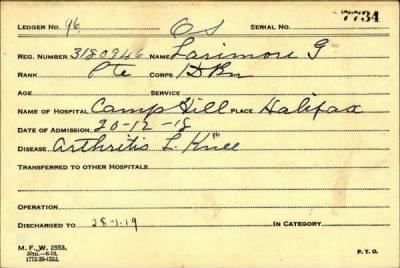 LEDGER NO. 96. OS SERIAL NO. 7734
REG. NUMBER 3180946 NAME Larimore G
RANK Pte CORPS 1 D Bn
AGE SERVICE
NAME OF HOSPITAL Camp Hill PLACE Halifax
DATE OF ADMISSION 20-12-18
DISEASE Arthritis L. Knee
TRANSFERRED TO OTHER HOSPITALS
OPERATION
DISCHARGED TO 28-1-19 IN CATEGORY
M. F. W. 2553.
50M.-6-18.
1772-39-1334.
P. T. O.